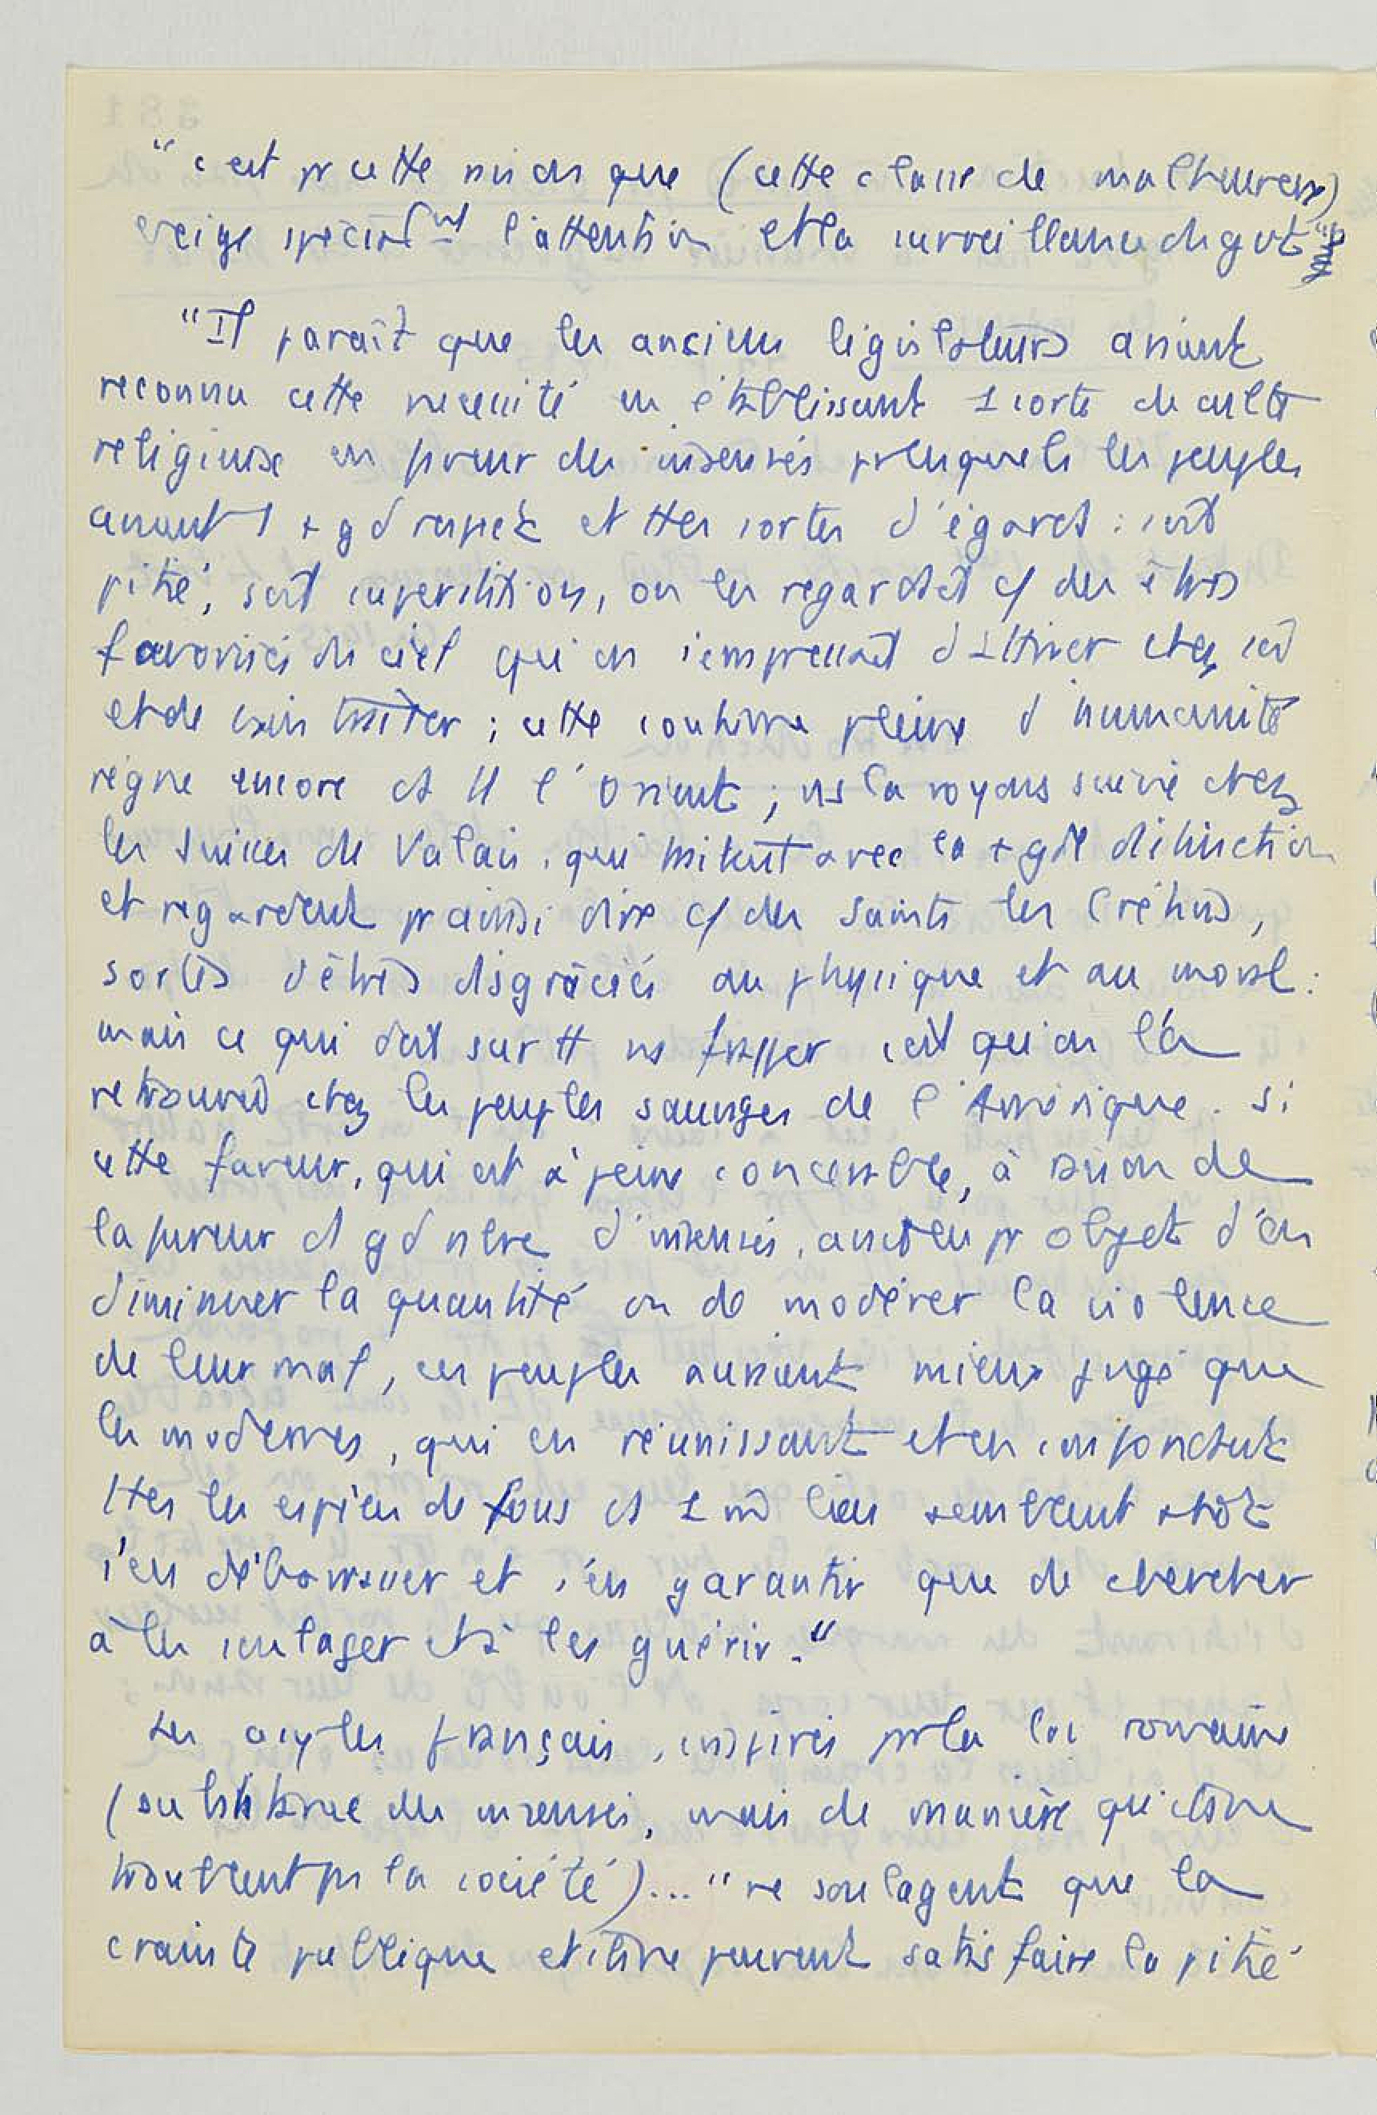 "c'est pr cette raison que (cette classe de malheureux)
exige spécialnt l'attention et la surveillance du gvt"
"Il paraît que les anciens législateurs avaient
reconnu cette nécessité en établissant 1 sorte de culte
religieux en faveur des insensés pr lesquels les peuples
avaient 1 + gd respect et ttes sortes d'égards : soit
pitié, soit superstition, on les regardait c/ des êtres
favorisés du ciel qu'on s'empressait d'attirer chez soi
et de bien traiter ; cette coutume pleine d'humanité
règne encore ds tt l'Orient ; ns la voyons suivie chez
les Suisses du Valais, qui traitent avec la + gde distinction
et regardent pr ainsi dire c/ des saints les Crétins,
sortes d'êtres disgrâciés au physique et au moral :
mais ce qui doit surtt ns frapper c'est qu'on l'a
retrouvée chez les peuples sauvages de l'Amérique. Si
cette faveur, qui est à peine concevable, à raison de
la fureur d'1 gd nbre d'insensés, avait eu pr objet d'en
diminuer la quantité ou de modérer la violence
de leur mal, ces peuples auraient mieux jugé que
les modernes, qui en réunissant et en confondant
ttes les espèces de fous ds 1 m̂ lieu semblent + tôt
s'en débarrasser et s'en garantir que de chercher
à les soulager et à les guérir."
Les asyles français, inspirés pr la loi romaine
(où l'on traite des insensés, mais de manière qu'ils ne
troublent pas la société)... "ne soulagent que la
crainte publique et ils ne peuvent satisfaire la pitié